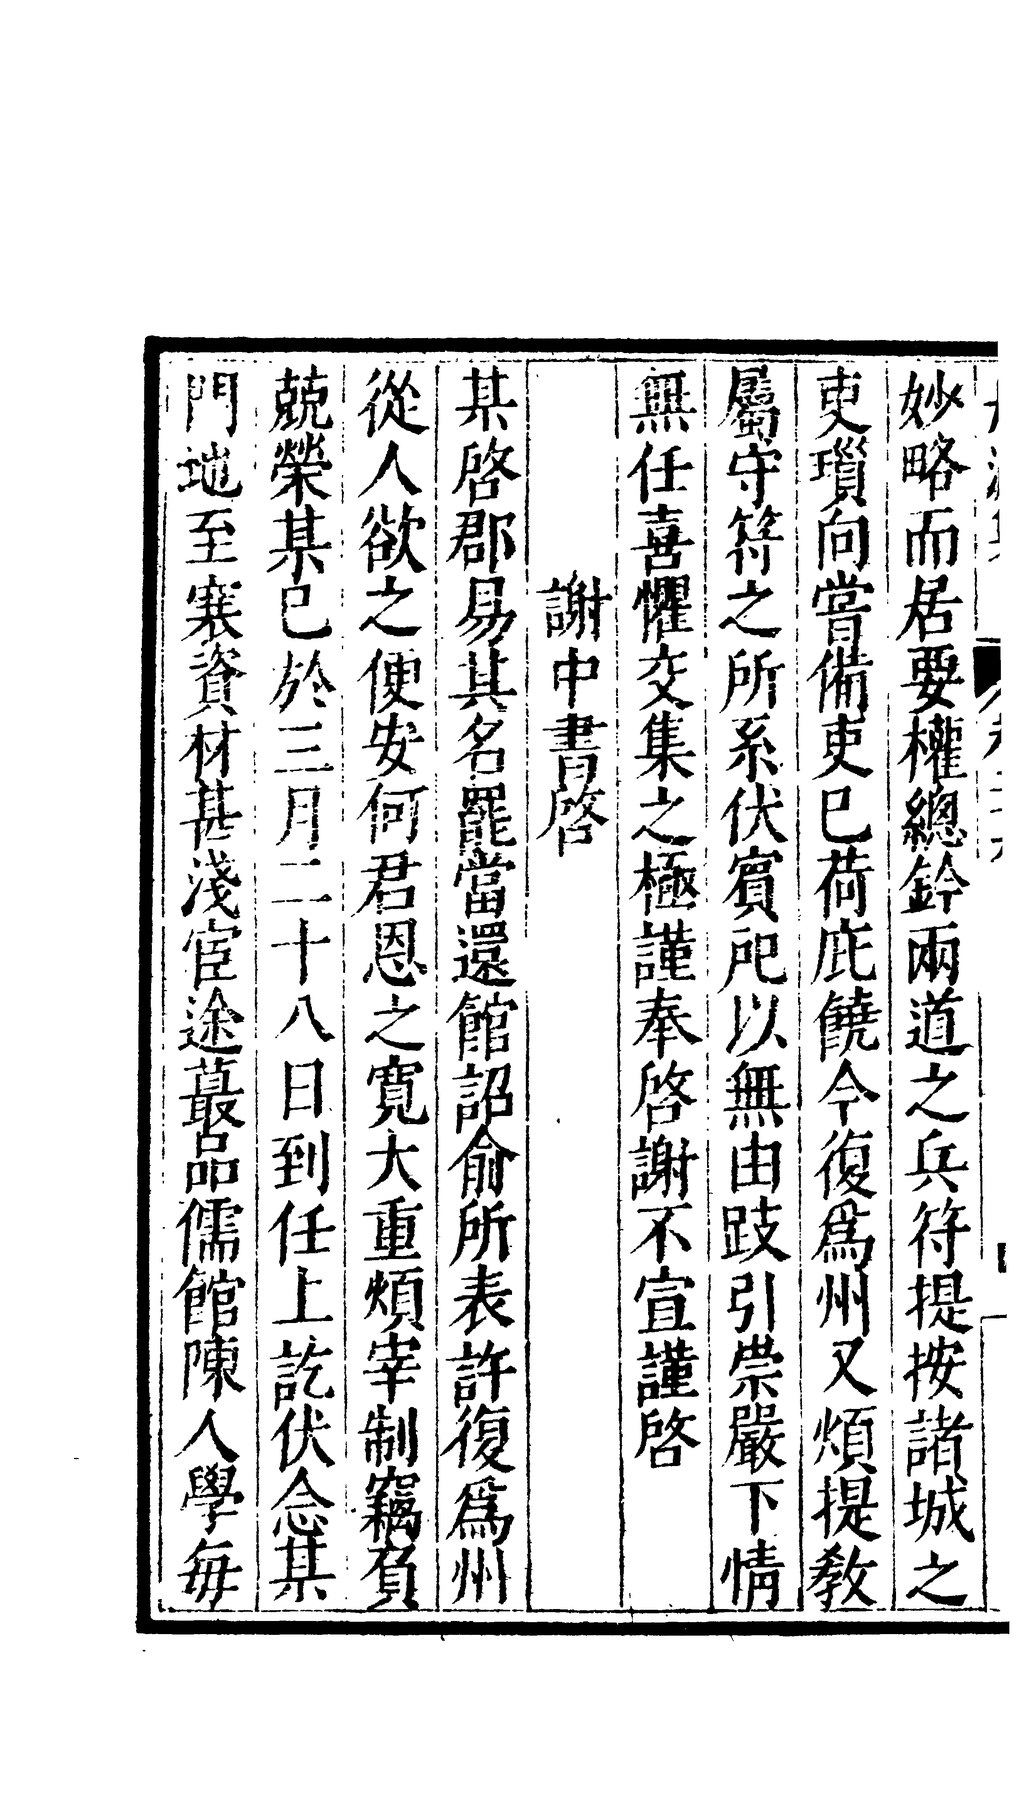 妙略而居要權總鈐兩道之兵符提按諸城之
吏瑣向嘗備吏已荷庇饒今復爲州又煩提敎
屬守符之所系伏賓戺以無由跂引崇嚴下情
無任喜懼交集之極謹奉啓謝不宣謹啓
謝中書啓
某啓郡易其名罷當還館詔俞所表許復爲州
從人欲之便安何君恩之寛大重煩宰制竊負
兢榮某已於三月二十八日到任上訖伏念某
門地至寒資材甚淺宦途蕞品儒館陳人學每